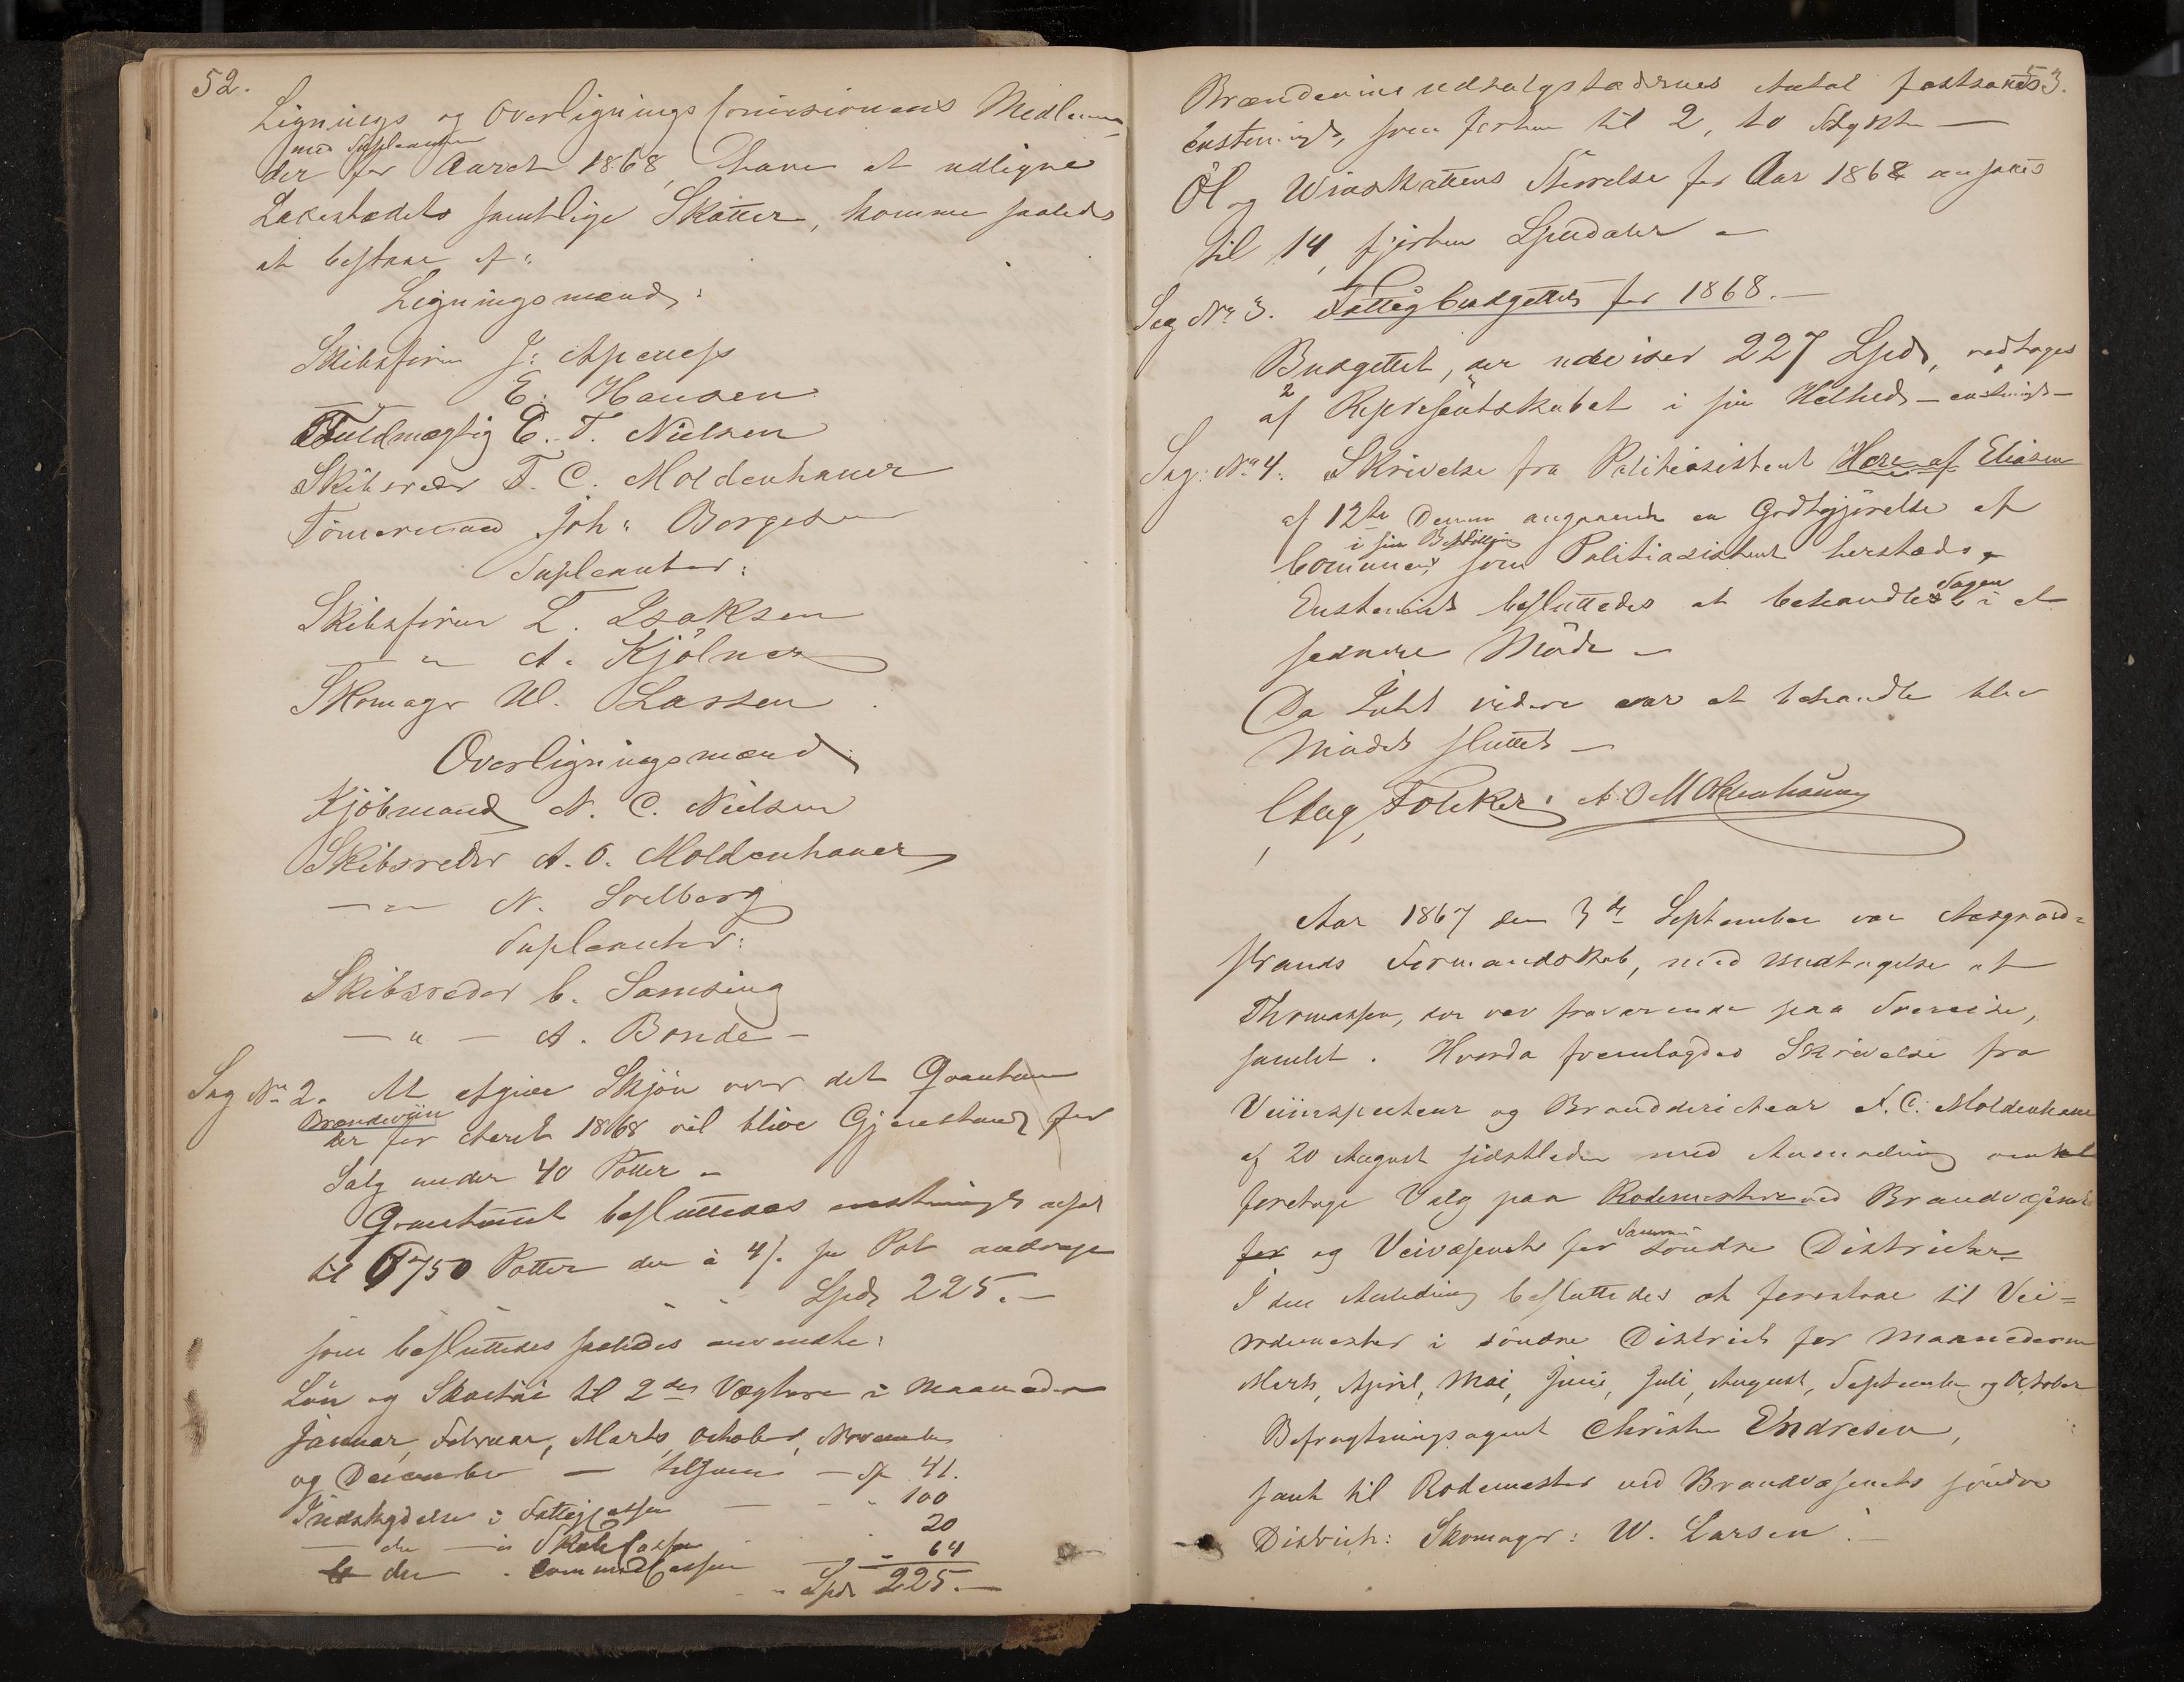 52.
Lignings og Overlignings Comissionens Medlem-
med Supleanter
der for Aaret 1868, have at udligne
Ladestedets samtlige Skatter, komme saaledes
at bestaae af:
Ligningsmænd:
Skibsfører J: Apenes
" E. Hansen
Fuldmægtig C. T. Nielsen
Skibsreder F. C. Moldenhauer
Tömermand Joh: Borgesen
Supleanter:
Skibsfører L. Isaksen
— " A. Kjölner
Skomager W. Larsen
Overligningsmænd
Kjöbmand N. C. Nielsen
Skibsreder A. O. Moldenhauer
— " — N. Soelberg
Supleanter:
Skibsreder C. Samsing
— " — A. Bonde —
Sag No 2. At afgive Skjön over det Qvantum
Brændeviin
der for Aaret 1868 vil blive Gjenstand for
Salg under 40 Potter —
Qvantumet besluttedes enstemigt ansat
til 6750 Potter der à 4 /. pr Pot andrage
Spd 225. —
som besluttedes saaledes anvendte:
Lön og Skostöi til 2de Vægtere i Maaneder
Januar, Februar, Marts, October, November
og December — tilsammen — Sp 41.
Indskydelse i Fattigcassen — " 100
— do — i Skolecassen " 20
do " CommuneCassen — " 64
" Spd 225. —
53.
Brændeviinsudsalgstædernes Antal fastsattes
Enstemigt, som forhen til 2, to Stykker —
Öl og Vinskattens Störrelse for Aar 1868 ansattes
til 14, fjorten Speciedaler —
Sag No 3. Fattigbudgettet for 1868. —
Budgettet, der udviser 227 Spd, vedtoges
af Representskabet i sin Helhed — enstemigt —
Sag No 4. Skrivelse fra Politiasistent Herlof Eliasen
af 12te Dennes angaaende en Godtgjörelse af
i sin Bestilling
Communen, som Politiasistent herstæds,
Sagen
Enstemigt besluttedes at behandles i et
sednere Möde —
Da Intet videre var at behandle blev
Mödet sluttet —
Aug, Folcker. A O Moldenhauer
Aar 1867 den 3de September var Aasgaard-
strands Formandskab, med Undtagelse af
Thomassen, der var fraværende paa Fra­reise,
samlet. Hvorda fremlagdes Skrivelse fra
Veiinspecteur og Branddirecteur F. C. Moldenhauer
af 20 August sidstleden med Anmodning om at
foretage Valg paa Rodemestere ved Brandvæsenet
for og Veivæsenet for söndre Districter
Samme
I den Anledning besluttedes at foreslaae til Vei-
rodemester i söndre District for Maanederne
Marts, April, Mai, Juni, Juli, August, September og October
Befragtningsagent Christen Endresen,
samt til Rodemester ved Brandvæsenets söndre
District: Skomager: W. Larsen. —